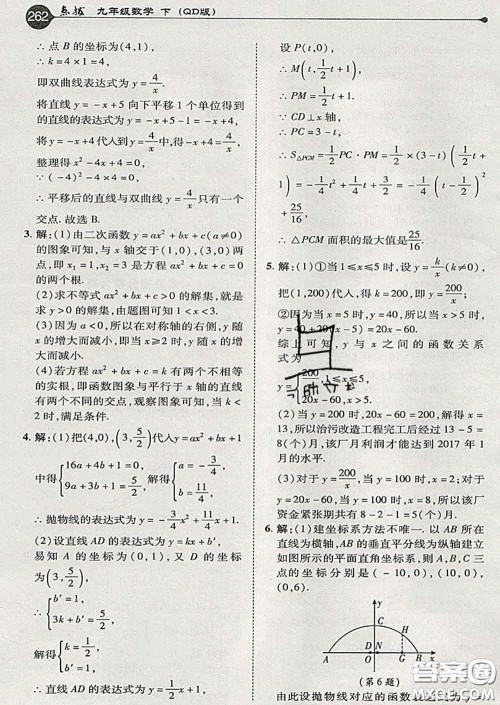 262 点拨 九年级数学 下(QD版)
∴点B的坐标为(4,1),
∴k=4×1=4,
即双曲线表达式为y=4/x.
将直线y=-x+5向下平移1个单位得到
的直线的表达式为y=-x+5-1=-x+4,
将y=-x+4代入到y=4/x中,得-x+4=4/x,
整理得x²-4x+4=0,
∴平移后的直线与双曲线y=4/x只有一个
交点.故选B.
3. 解:(1)由二次函数y=ax²+bx+c(a≠0)
的图象可知,与x轴交于(1,0),(3,0)两
点,即x₁=1,x₂=3是方程ax²+bx+c=0
的两个根.
(2)求不等式ax²+bx+c>0的解集,就是
求y>0的解集,由题图可知1<x<3.
(3)因为a<0,所以在对称轴的右侧,y随x
的增大而减小,即当x≥2时,y随x的增大
而减小.
(4)若方程ax²+bx+c=k有两个不相等
的实根,即函数图象与平行于x轴的直线
有两个不同的交点,观察图象可知,当k<
2时,满足条件.
4. 解:(1)把(4,0),(3,5/2)代入y=ax²+bx+1
中得{16a+4b+1=0, 9a+3b+1=5/2, 解得{a=-1/2, b=7/4.
(2)设直线AD的表达式为y=kx+b′,
易知A的坐标为(0,1),又D的坐标
为(3,5/2),
∴{b′=1, 3k+b′=5/2,
解得{k=1/2, b′=1,
∴直线AD的表达式为y=1/2x+1,
设P(t,0),
∴M(t,1/2t+1),
∴PM=1/2t+1.
∵CD∥x轴,
∴PC=3-t,
∴S△PCM=1/2PC·PM=1/2×(3-t)(1/2t+
1)=-1/4t²+1/4t+3/2=-1/4(t-1/2)²+
25/16,
∴△PCM面积的最大值是25/16.
5. 解:(1)①当1≤x≤5时,设y=k/x(k≠0),
把(1,200)代入,得k=200,即y=200/x;
②因为当x=5时,y=40,所以当x>5时,
y=40+20(x-5)=20x-60.
综上可知,y与x之间的函数关系
式为
y={200/x,1≤x≤5, 20x-60,x>5.
(2)当y=200时,20x-60=200,x=
13,所以治污改造工程完工后经过13-5=
8(个)月,该厂月利润才能达到2017年1
月的水平.
(3)对于y=200/x,当y=100时,x=2;对于
y=20x-60,当y=100时,x=8,所以该厂
资金紧张期共有8-2-1=5(个)月.
6. 解:(1)建坐标系方法不唯一.以AB所在
直线为横轴,AB的垂直平分线为纵轴建立
如图所示的平面直角坐标系,则A,B,C三
点的坐标分别是(-10,0),(10,0),
(0,6).
y C H A D N G B x
(第6题)
由此设抛物线对应的函数表达式为